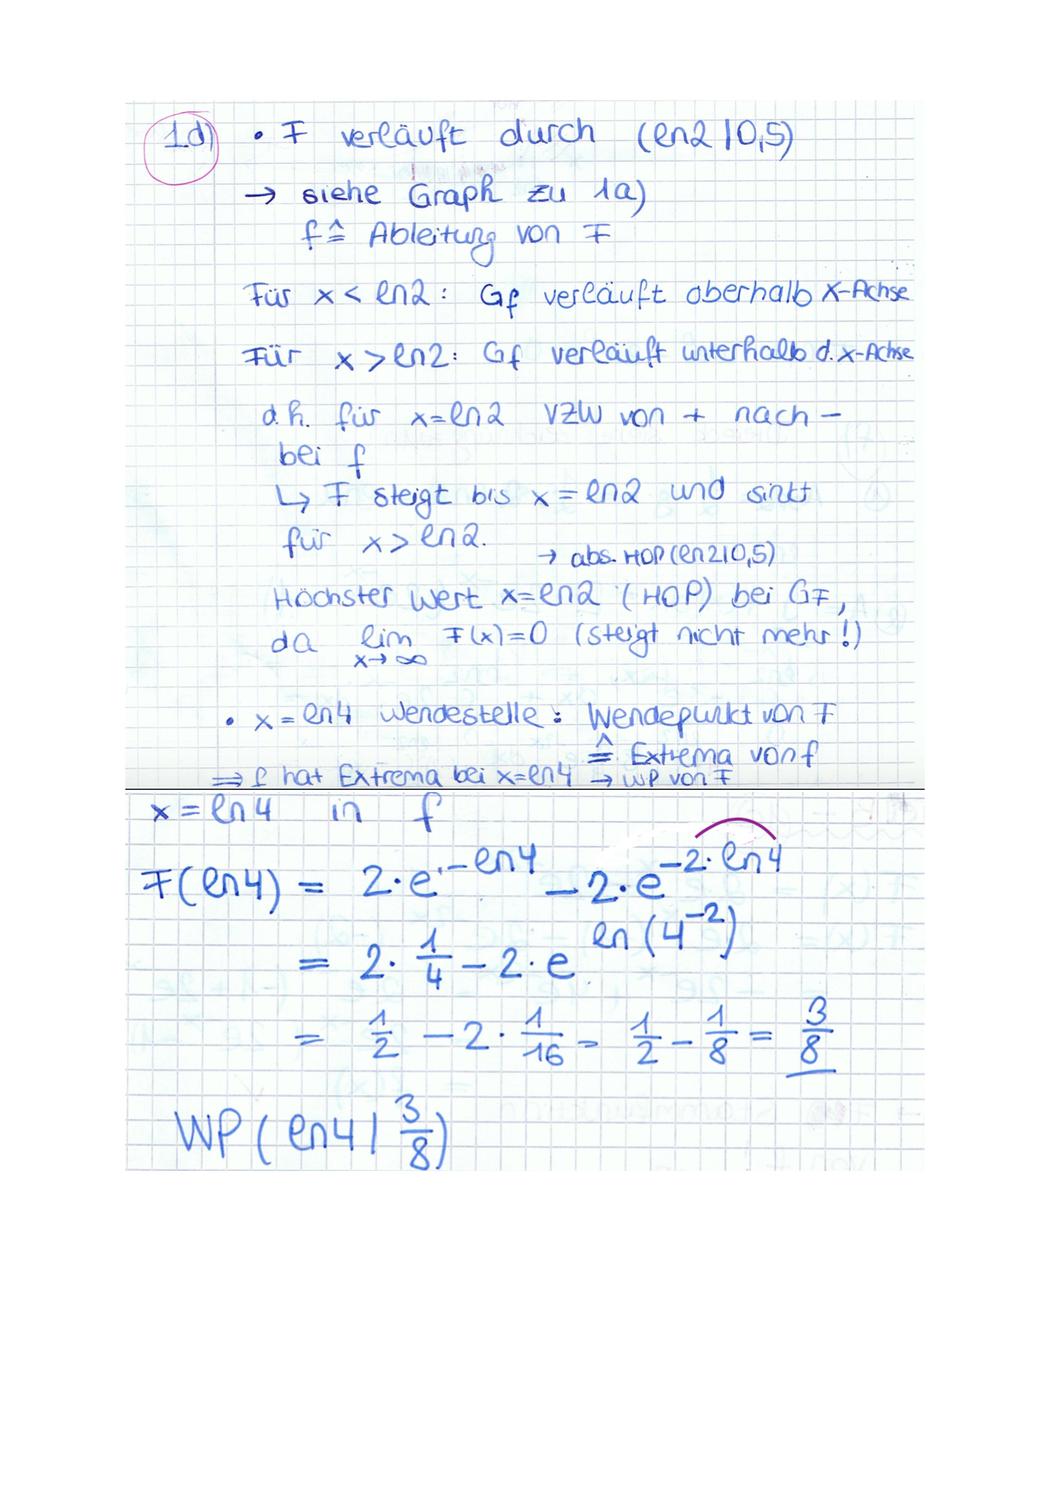 1d) • F verläuft durch (ln2 | 0,5)
→ siehe Graph zu 1a)
f ≙ Ableitung von F
Für x < ln2 : Gf verläuft oberhalb x-Achse
Für x > ln2 : Gf verläuft unterhalb d. x-Achse
d.h. für x = ln2 VZW von + nach –
bei f
↳ F steigt bis x = ln2 und sinkt
für x > ln2.
→ abs. HOP (ln2|0,5)
Höchster Wert x = ln2 (HOP) bei GF,
da lim x→∞ F(x) = 0 (steigt nicht mehr!)
• x = ln4 Wendestelle : Wendepunkt von F
≙ Extrema von f
⇒ f hat Extrema bei x=ln4 → WP von F
x = ln4 in f
F(ln4) = 2·e^{-ln4} – 2·e^{-2·ln4}
= 2· 1/4 – 2·e^{ln(4^{-2})}
= 1/2 – 2· 1/16 = 1/2 – 1/8 = 3/8
WP ( ln4 | 3/8 )